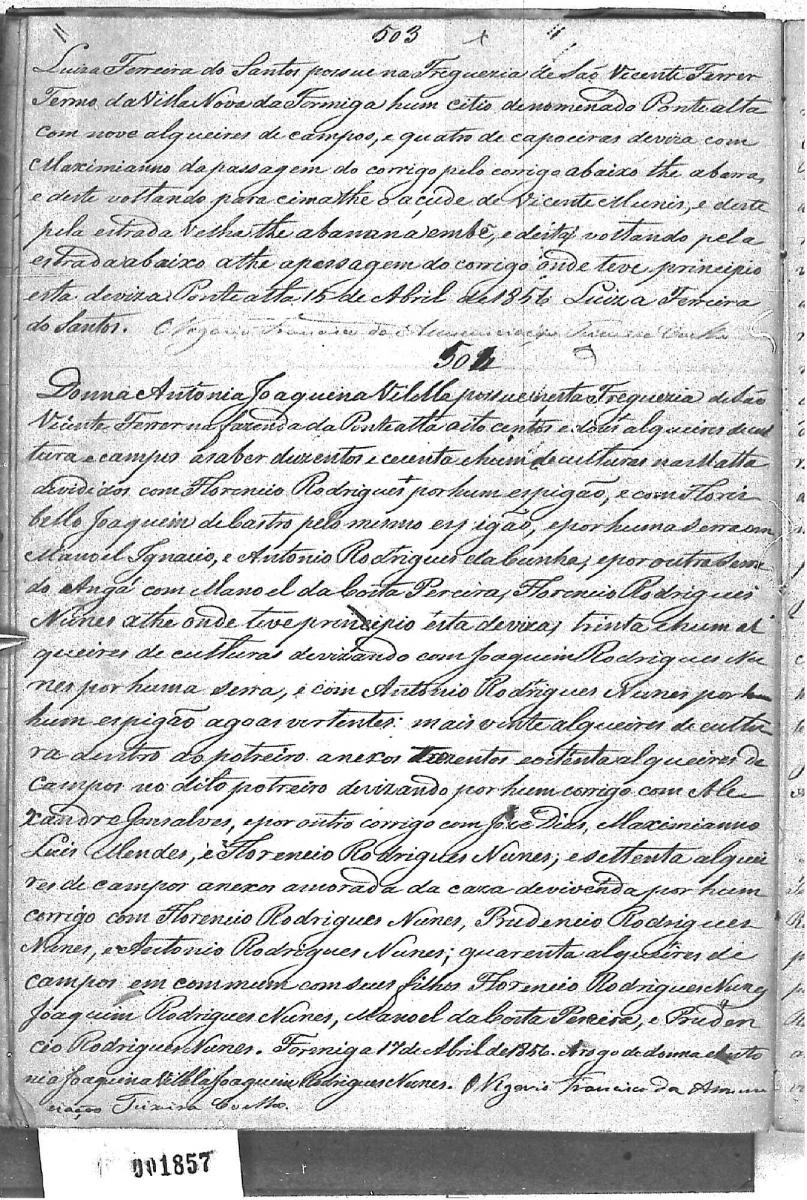 503
Luiza Ferreira do Santos possue na Freguezia de São Vicente Ferrer
Termo da Villa Nova da Formiga hum citio denomenado Ponte alta
com nove alqueires de campos, e quatro de capoeiras deviza com
Maximianno da passagem do corrigo pelo corrigo abaixo the a barra,
e deste voltando para cima the o açude de Vicente Munis, e desta
pela estrada Velha the abananá embê, e desta voltando pela
estrada abaixo athe apassagem do corrigo onde teve principio
esta deviza, Ponte alta 15 de Abril de 1856 Luiza Ferreira
do Santos. O Vigario Francisco da Annunciação Teixeira Coelho
504
Donna Antonia Joaquina Vilella possue nesta Freguezia de São
Vicente Ferrer na fazenda da Ponte alta oito centos e dous alqueires de cul
tura e campos a saber duzentos e cecenta e hum de culturas na Matta
devididos com Florencio Rodrigues por hum espigão, e com Floris
bello Joaquim de Castro pelo mesmo espigão, e por huma serra com
Manoel Ignacio, e Antonio Rodrigues da Cunha, e por outra serra
do Angá com Manoel da Costa Pereira, Florencio Rodrigues
Nunes athe onde teve principio esta deviza; trinta e hum al
queires de culturas devizando com Joaquim Rodrigues Nu
nes por huma serra, e com Antonio Rodrigues Nunes por
hum espigão agoas vertentes: mais vinte alqueires de cultu
ra dentro do potreiro anexos trezentos e oitenta alqueires de
campos no dito potreiro devizando por hum corrigo com Ale
xandre Gonsalves, e por outro corrigo com José Dias, Maximianno
Luis Mendes, e Florencio Rodrigues Nunes; e settenta alquei
res de campor anexos amorada da caza devivenda por hum
corrigo com Florencio Rodrigues Nunes, Prudencio Rodrigues
Nunes, e Antonio Rodrigues Nunes; quarenta alqueires de
campos em commum com seus filhos Florencio Rodrigues Nunes
Joaquim Rodrigues Nunes, Manoel da Costa Pereira, e Pruden
cio Rodrigues Nunes. Formiga 17 de Abril de 1856. Arogo de donna Anto
nia Joaquina Vilella Joaquim Rodrigues Nunes. O Vigario Francisco da Annun
ciação Teixeira Coelho.
001857